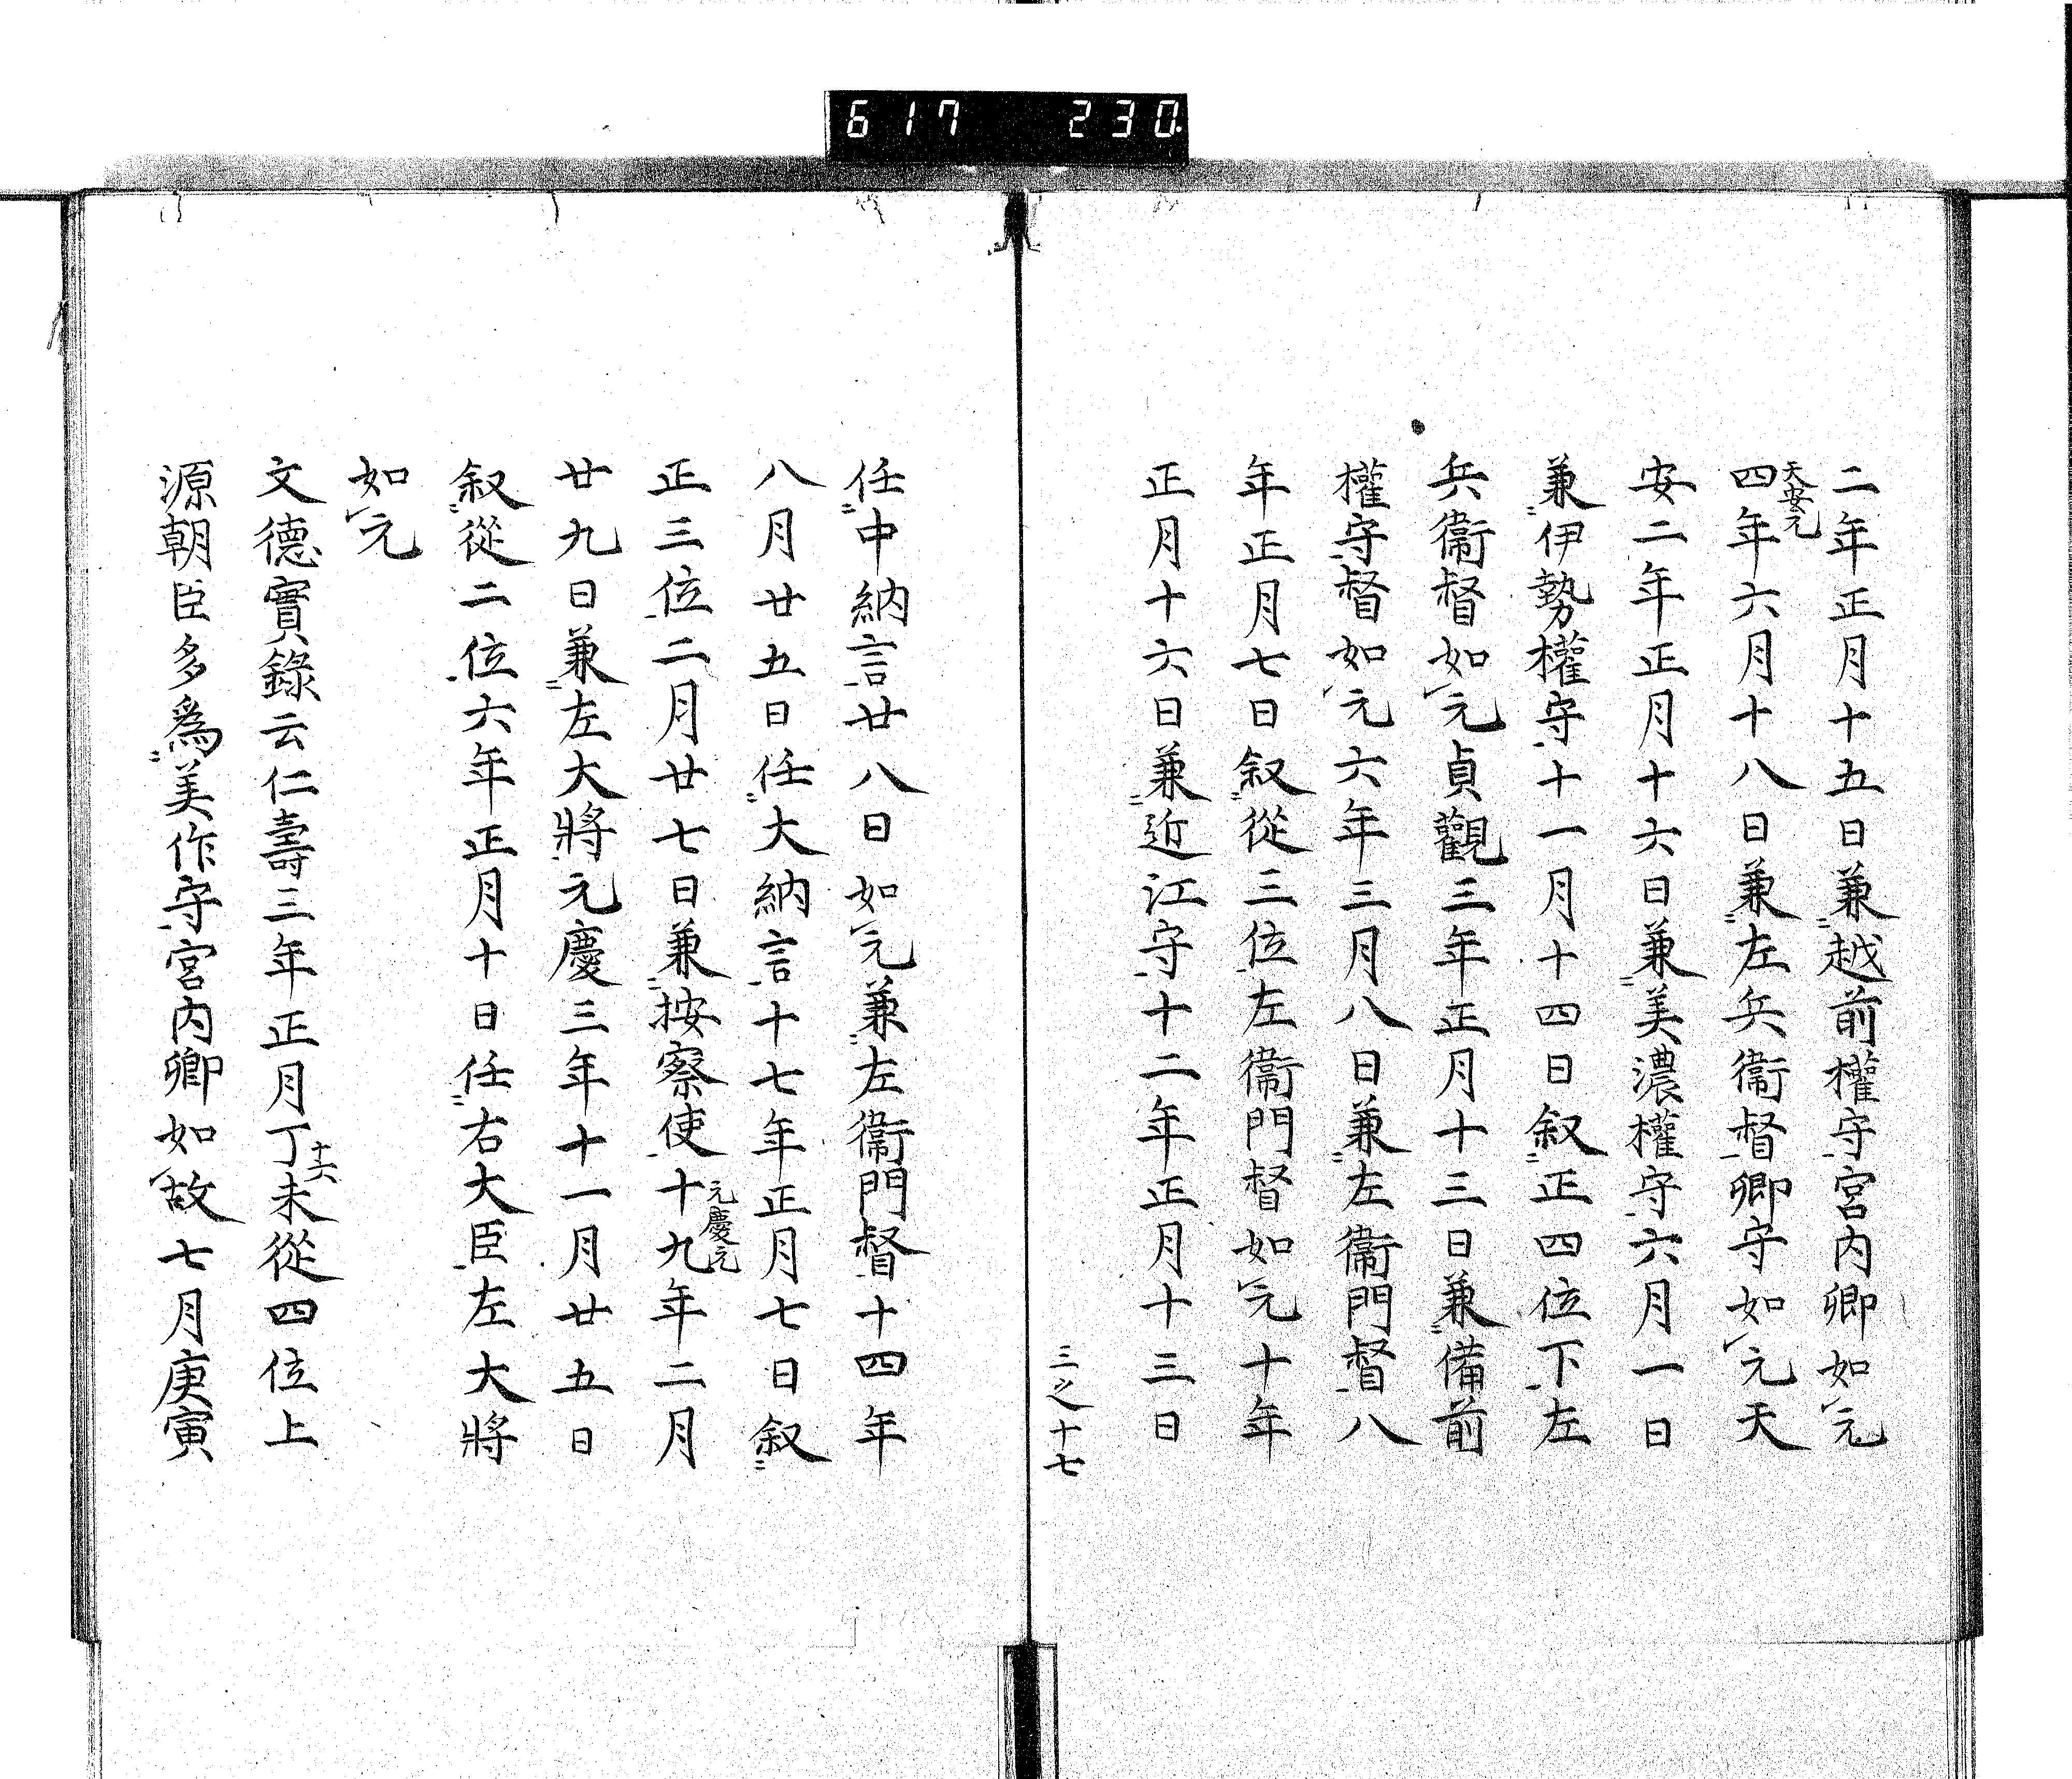 617 230.
二年正月十五日兼越前權守宮內卿如元
天安元
四年六月十八日兼左兵衞督卿守如元天
安二年正月十六日兼美濃權守六月一日
兼伊勢權守十一月十四日叙正四位下左
兵衞督如元貞觀三年正月十三日兼備前
權守督如元六年三月八日兼左衞門督八
年正月七日叙從三位左衞門督如元十年
正月十六日兼近江守十二年正月十三日
三之十七
任中納言廿八日如元兼左衞門督十四年
八月廿五日任大納言十七年正月七日叙
元慶元
正三位二月廿七日兼按察使十九年二月
廿九日兼左大將元慶三年十一月廿五日
叙從二位六年正月十日任右大臣左大將
如元
十六
文德實錄云仁壽三年正月丁未從四位上
源朝臣多爲美作守宮內卿如故七月庚寅